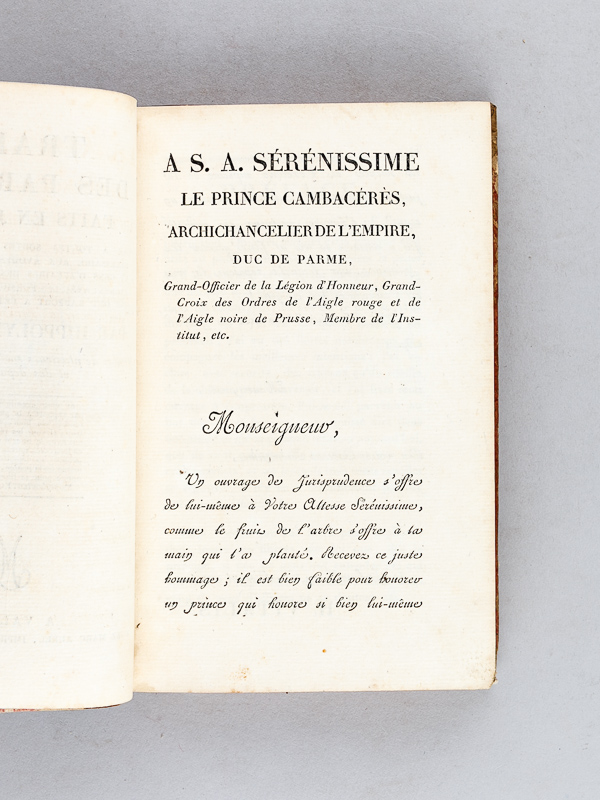 A S. A. SÉRÉNISSIME
LE PRINCE CAMBACÉRÈS,
ARCHICHANCELIER DE L'EMPIRE,
DUC DE PARME,
Grand-Officier de la Légion d'Honneur, Grand-
Croix des Ordres de l'Aigle rouge et de
l'Aigle noire de Prusse, Membre de l'Ins-
titut, etc.
Monseigneur,
Un ouvrage de Jurisprudence s'offre
de lui-même à Votre Altesse Sérénissime,
comme le fruit de l'arbre s'offre à la
main qui l'a planté. Recevez ce juste
hommage ; il est bien faible pour honorer
un prince qui honore si bien lui-même